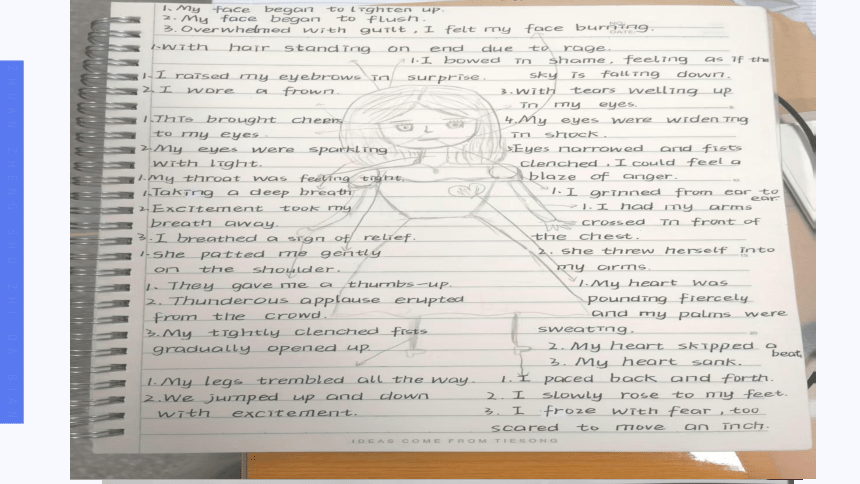 1. My face began to lighten up.
2. My face began to flush.
3. Overwhelmed with guilt, I felt my face burning.
1. With hair standing on end due to rage.
1. I bowed in shame, feeling as if the
sky is falling down.
1. I raised my eyebrows in surprise.
2. I wore a frown.
3. with tears welling up
in my eyes.
1. This brought cheers
to my eyes.
4. My eyes were widening
in shock.
2. My eyes were sparkling
with light.
5. Eyes narrowed and fists
clenched, I could feel a
blaze of anger.
1. My throat was feeling tight.
1. Taking a deep breath
2. Excitement took my
breath away.
3. I breathed a sign of relief.
1. I grinned from ear to
ear
1. I had my arms
crossed in front of
the chest.
1. She patted me gently
on the shoulder.
2. she threw herself into
my arms.
1. They gave me a thumbs-up.
2. Thunderous applause erupted
from the crowd.
3. My tightly clenched fists
gradually opened up
1. My heart was
pounding fiercely
and my palms were
sweating.
2. My heart skipped a
beat
3. My heart sank.
1. My legs trembled all the way.
2. We jumped up and down
with excitement.
1. I paced back and forth.
2. I slowly rose to my feet.
3. I froze with fear, too
scared to move an inch.
IDEAS COME FROM TIESONG